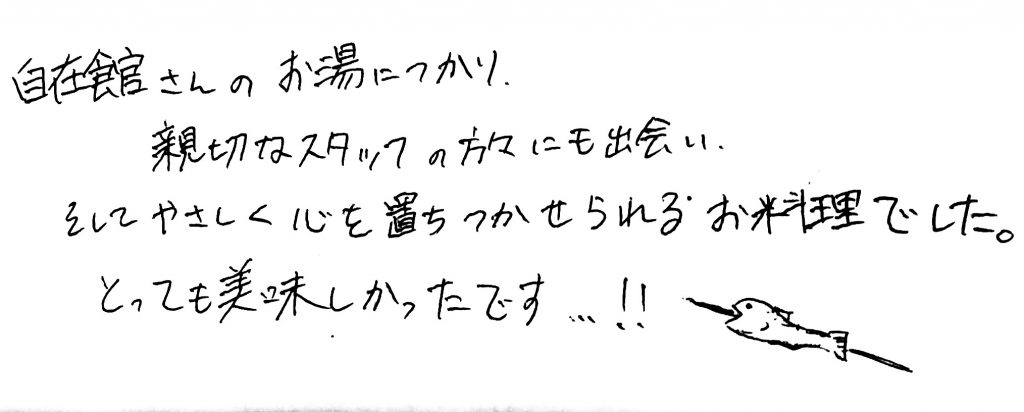 自在館さんのお湯につかり.
親切なスタッフの方々にも出会い.
そしてやさしく心を置ちつかせられるお料理でした。
とっても美味しかったです…!!